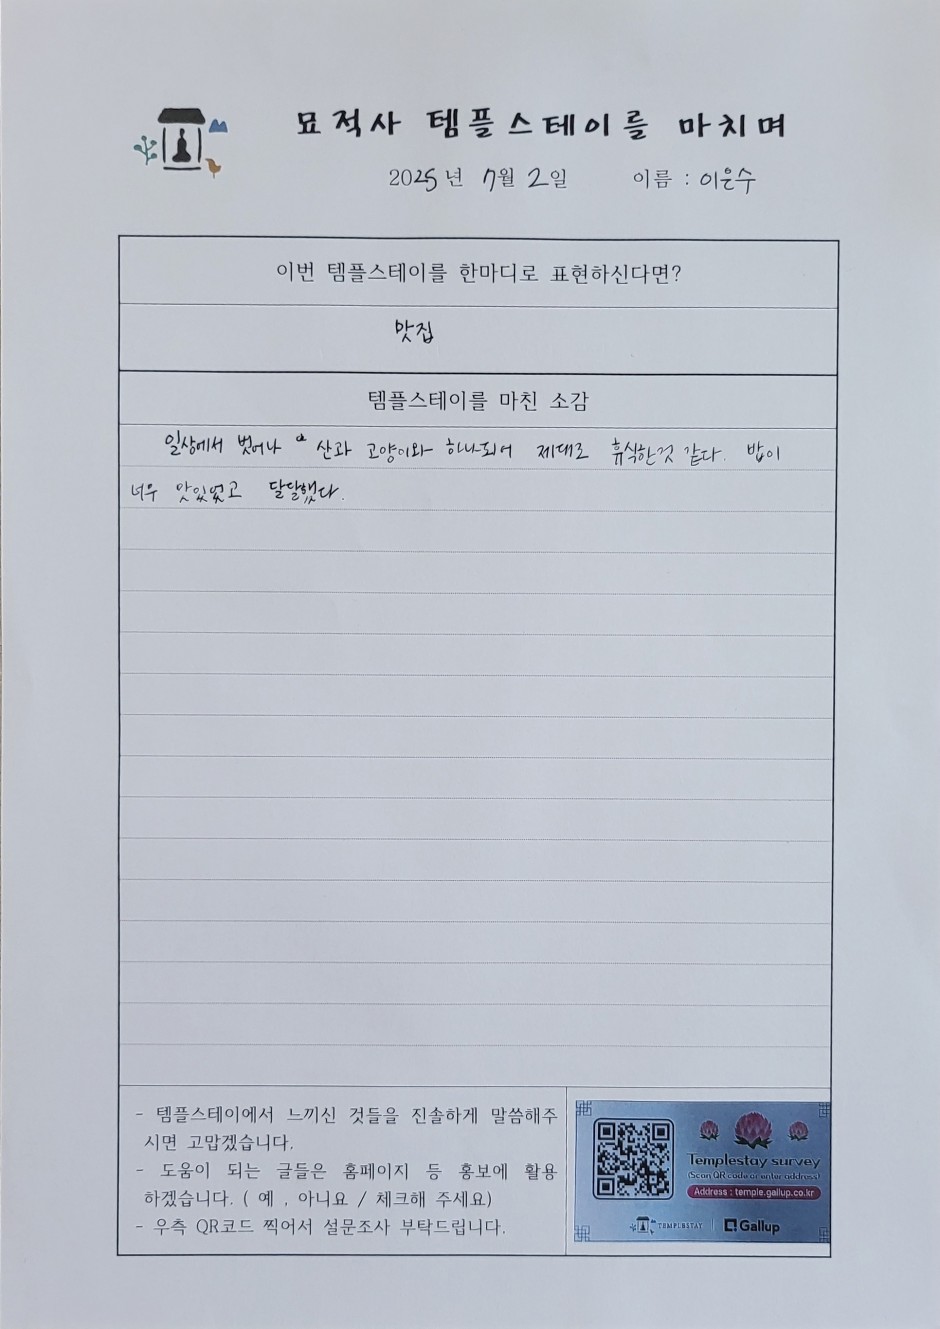 묘적사 템플스테이를 마치며
2025년 7월 2일 이름 : 이은수
이번 템플스테이를 한마디로 표현하신다면?
맛집
템플스테이를 마친 소감
일상에서 벗어나 산과 고양이와 하나되어 제대로 휴식한것 같다. 밥이
너무 맛있었고 달달했다.
- 템플스테이에서 느끼신 것들을 진솔하게 말씀해주
시면 고맙겠습니다.
- 도움이 되는 글들은 홈페이지 등 홍보에 활용
하겠습니다. ( 예 , 아니요 / 체크해 주세요)
- 우측 QR코드 찍어서 설문조사 부탁드립니다.
Templestay survey
(Scan QR code or enter address)
Address : temple.gallup.co.kr
TEMPLESTAY Gallup